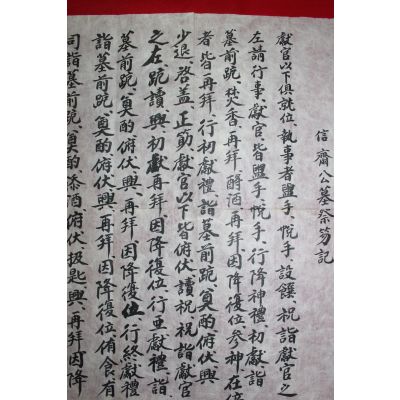 信齋公墓祭笏記
獻官以下俱就位、執事者盥手、帨手、設饌、祝詣獻官之
左請行事、獻官皆盥手、帨手、行降神禮、初獻詣
墓前跪、焚香、再拜、酹酒再拜、因降復位、參神在位
者皆再拜、行初獻禮、詣墓前跪、奠酌俯伏興
少退、啓盖、正箸、獻官以下皆俯伏讀祝、祝詣獻官
之左、跪讀興、初獻再拜、因降復位、行亚獻禮、詣
墓前跪、奠酌俯伏、興、再拜、因降復位、行終獻禮
詣墓前跪、奠酌俯伏、興、再拜、因降復位、侑食、有
司詣墓前跪、奠酌、添酒俯伏、扱匙興、再拜因降